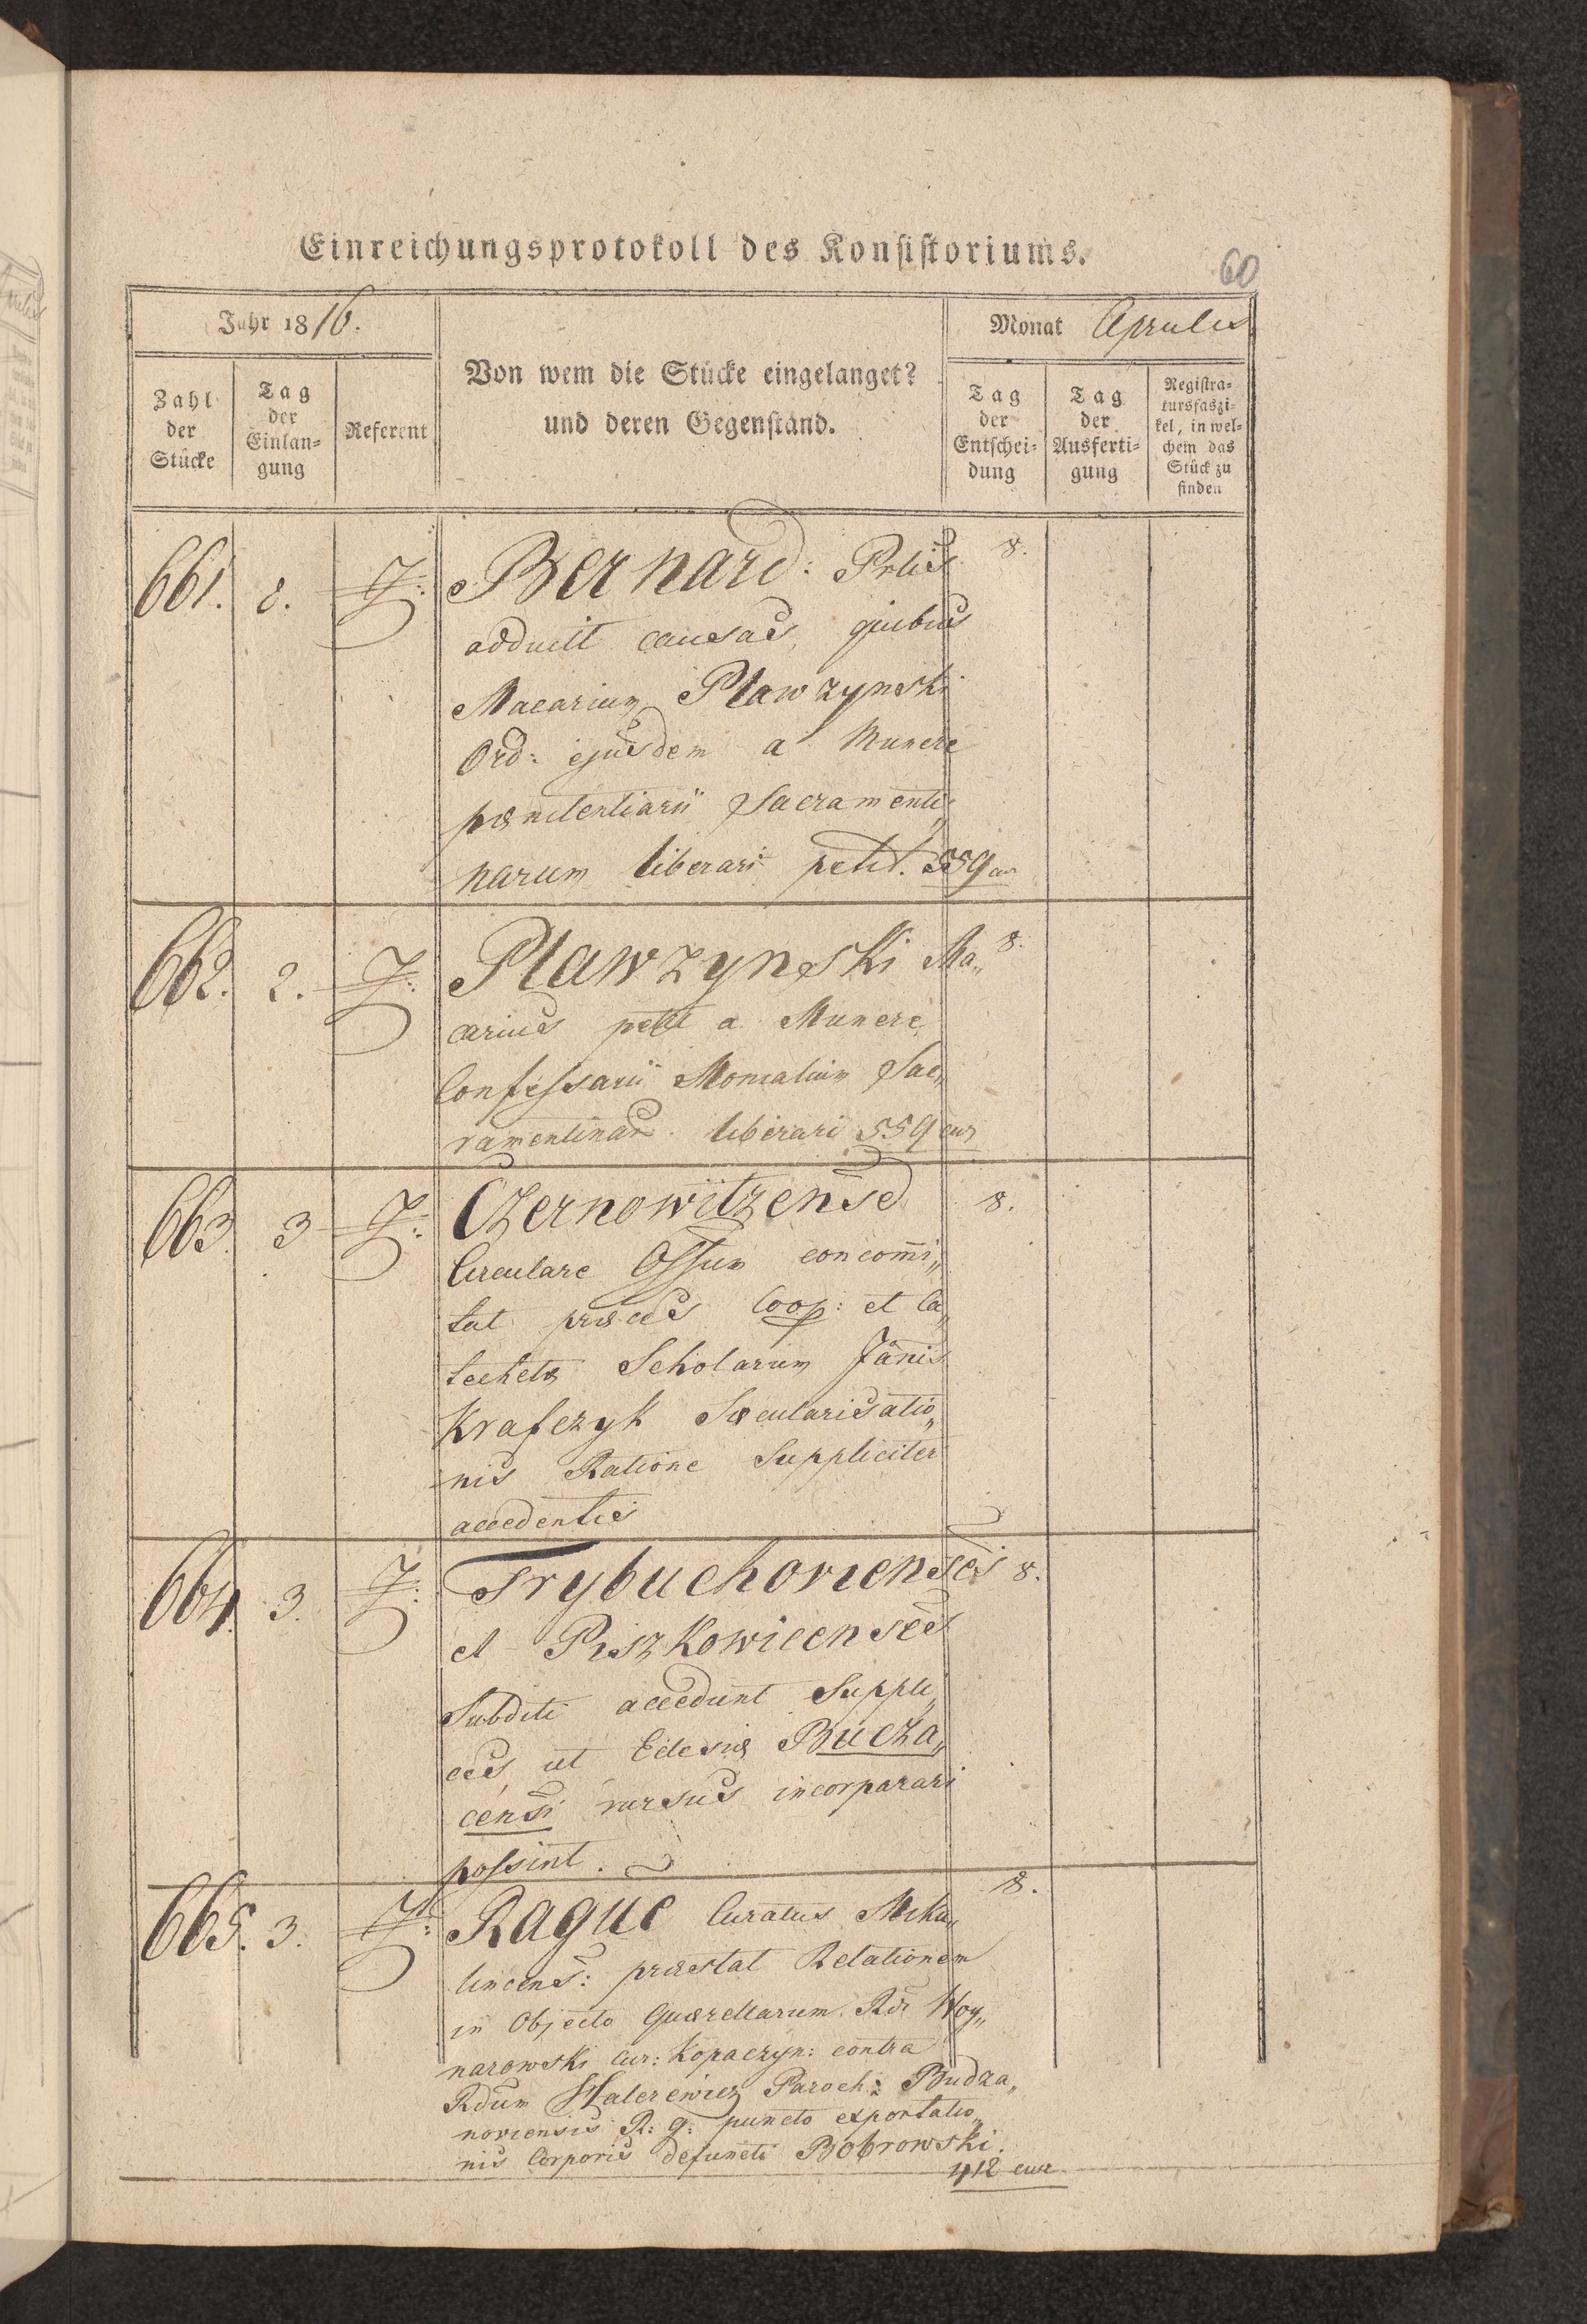 Einreichungsprotokoll des Konsistoriums.
60
Jahr 1816.
Monat Aprilis
Zahl der Stücke
Tag der Einlangung
Referent
Von wem die Stücke eingelanget?
und deren Gegenstand.
Tag der Entschei=dung
Tag der Ausferti=gung
Registra=tursfaszi=kel, in wel=chem das Stück zu finden
661. 2. J: Bernard: Prlis 8.
adducit causas, quibus
Macarium Plawzynski
Ord: ejusdem a Munere
pænitentiarii Sacramenti„
narum liberari petit. 559 cur
662. 2. J: Plawzynski Ma„ 8.
carius petit a Munere
Confessarii Monialium Sac„
ramentinar liberari 559 cur
663. 3 J: Czernowitzense 8.
Circulare Offum concomi„
tat præces Coop: et Ca„
techetæ Scholarum Jānis
Krafczyk Sæcularisatio„
nis Ratione Suppliciter
accedentis
664. 3. J: Trybuchovienses 8.
et Piszkowicenses
Subditi accedunt Suppli„
ces, ut Eclesiæ Bucza„
censi rursus incorporari
possint.
665. 3. J: Rague Curatus Miku„ 8.
lincens: præstat Relationem
in Objecto Quærellarum Rdi Woy„
narowski Cur: Kopaczyn: contra
Rdum Halerewicz Paroch: Budza„
noviensis R: g: puncto exportatio„
nis Corporis defuncti Bobrowski.
412 cur